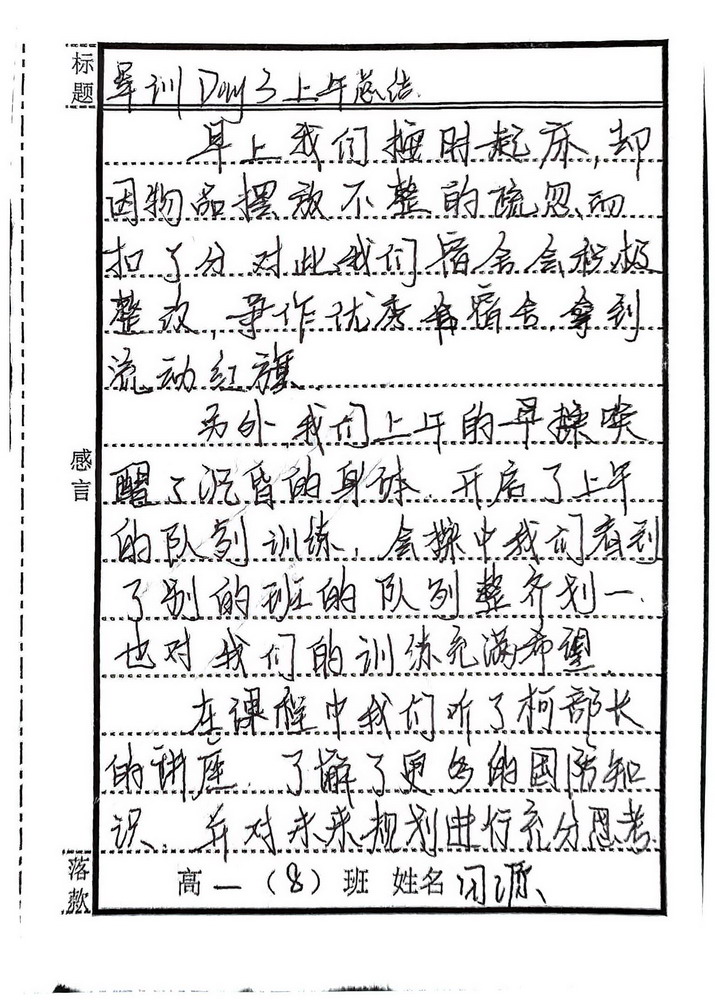 标题
军训Day3上午总结.
早上我们按时起床,却
因物品摆放不整的疏忽、而
扣了分.对此,我们宿舍会积极
整改,争作优秀宿舍,拿到
流动红旗.
另外,我们上午的早操唤
醒了沉昏的身体.开启了上午
的队列训练,会操中我们看到
了别的班的队列整齐划一、
也对我们的训练充满希望.
在课程中我们听了柯部长
的讲座.了解了更多的国防知
识、并对未来规划进行充分思考.
感言
落款
高一(8)班 姓名